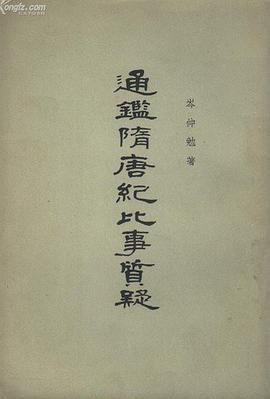 Kongfz.com
岑仲勉著
通鑑隋唐紀比事質疑